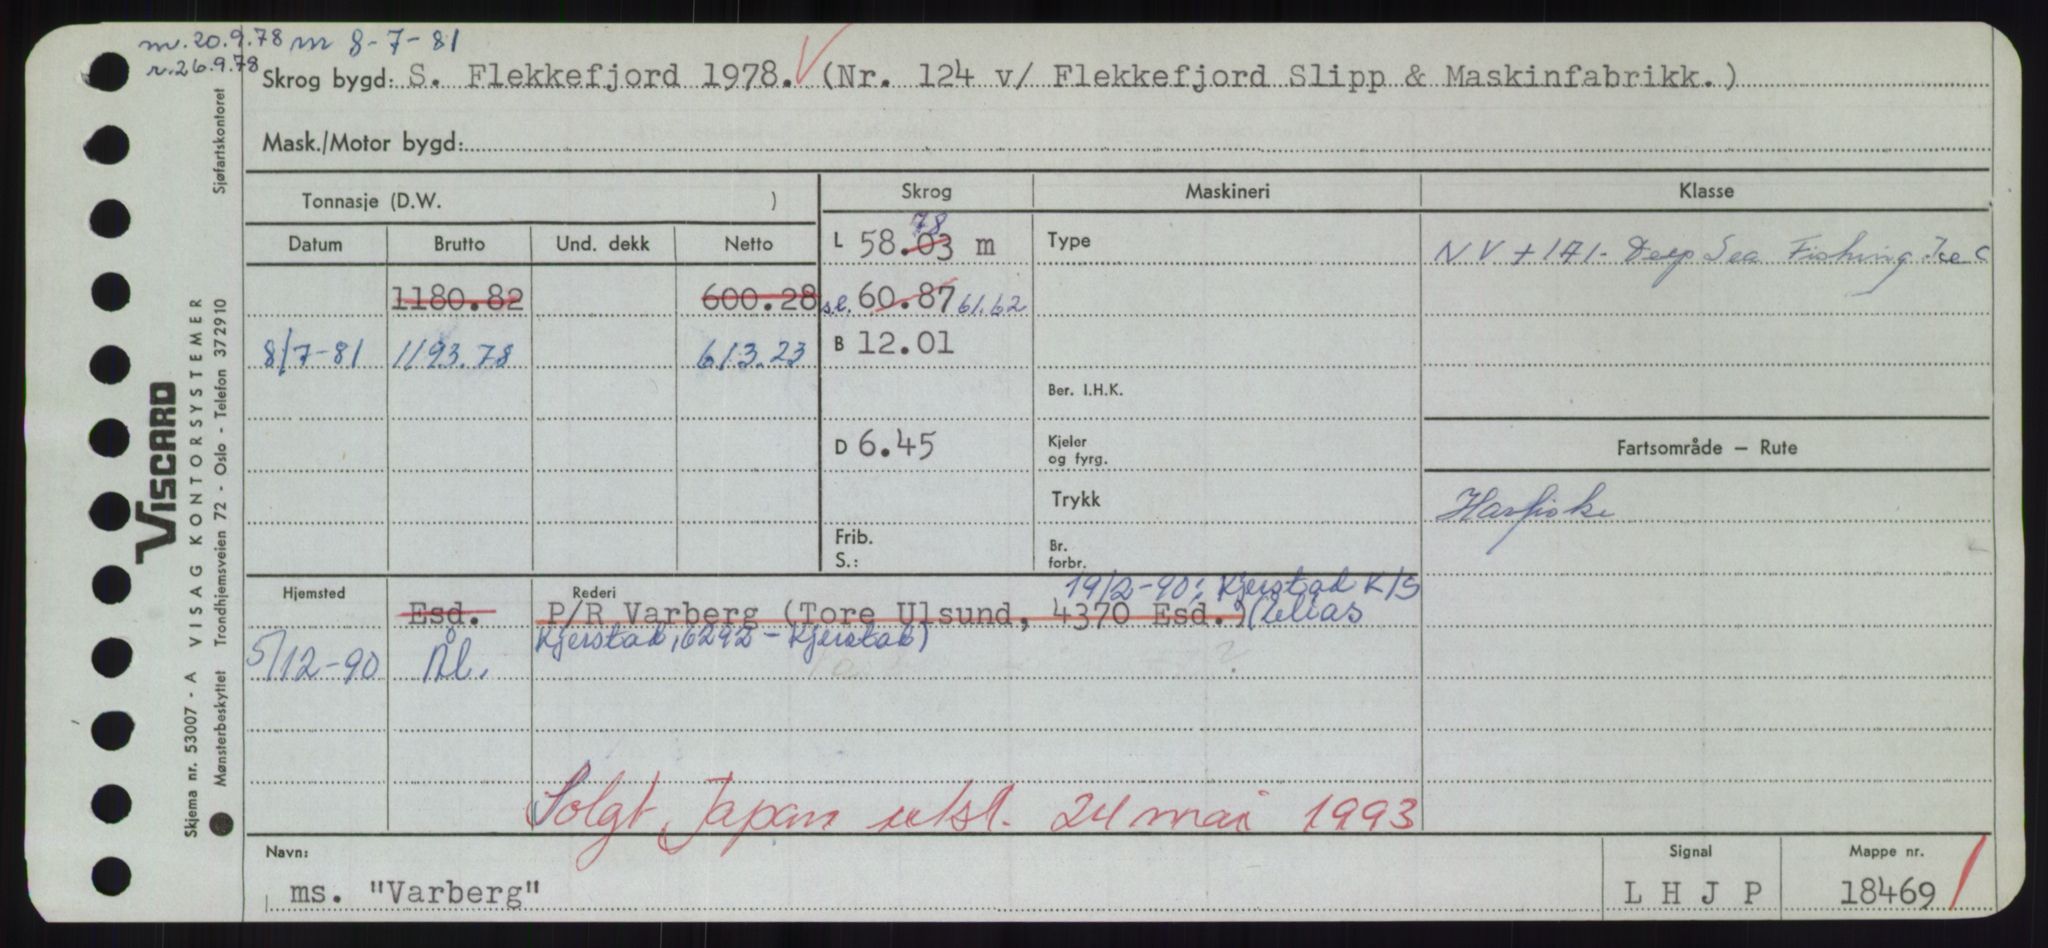 m. 20.9.78 m 8-7-81
r. 26.9.78
Skrog bygd: S. Flekkefjord 1978. V (Nr. 124 v/ Flekkefjord Slipp & Maskinfabrikk.)
Mask./Motor bygd:
Tonnasje (D.W. ) Skrog Maskineri Klasse
Datum Brutto Und. dekk Netto
L 58.03 78 m Type NV + 1A1- Deep Sea Fishing. Ice C
1180.82 600.28 s.l. 60.87 61.62
8/7-81 1193.78 613.23 B 12.01
Ber. I.H.K.
D 6.45 Kjeler og fyrg. Fartsområde — Rute
Trykk Havfiske
Frib. S.: Br. forbr.
Hjemsted Rederi 19/2-90: Kjerstad K/S
Esd. P/R Varberg (Tore Ulsund, 4370 Esd.) (Elias
Kjerstad, 6292 - Kjerstad)
5/12-90 Ål.
Solgt Japan utsl. 24 mai 1993
Navn: Signal Mappe nr.
ms. "Varberg" L H J P 18469 /
VISCARD
Skjema nr. 53007 - A VISAG KONTORSYSTEMER
Mønsterbeskyttet Trondhjemsveien 72 - Oslo - Telefon 372910 Sjøfartskontoret